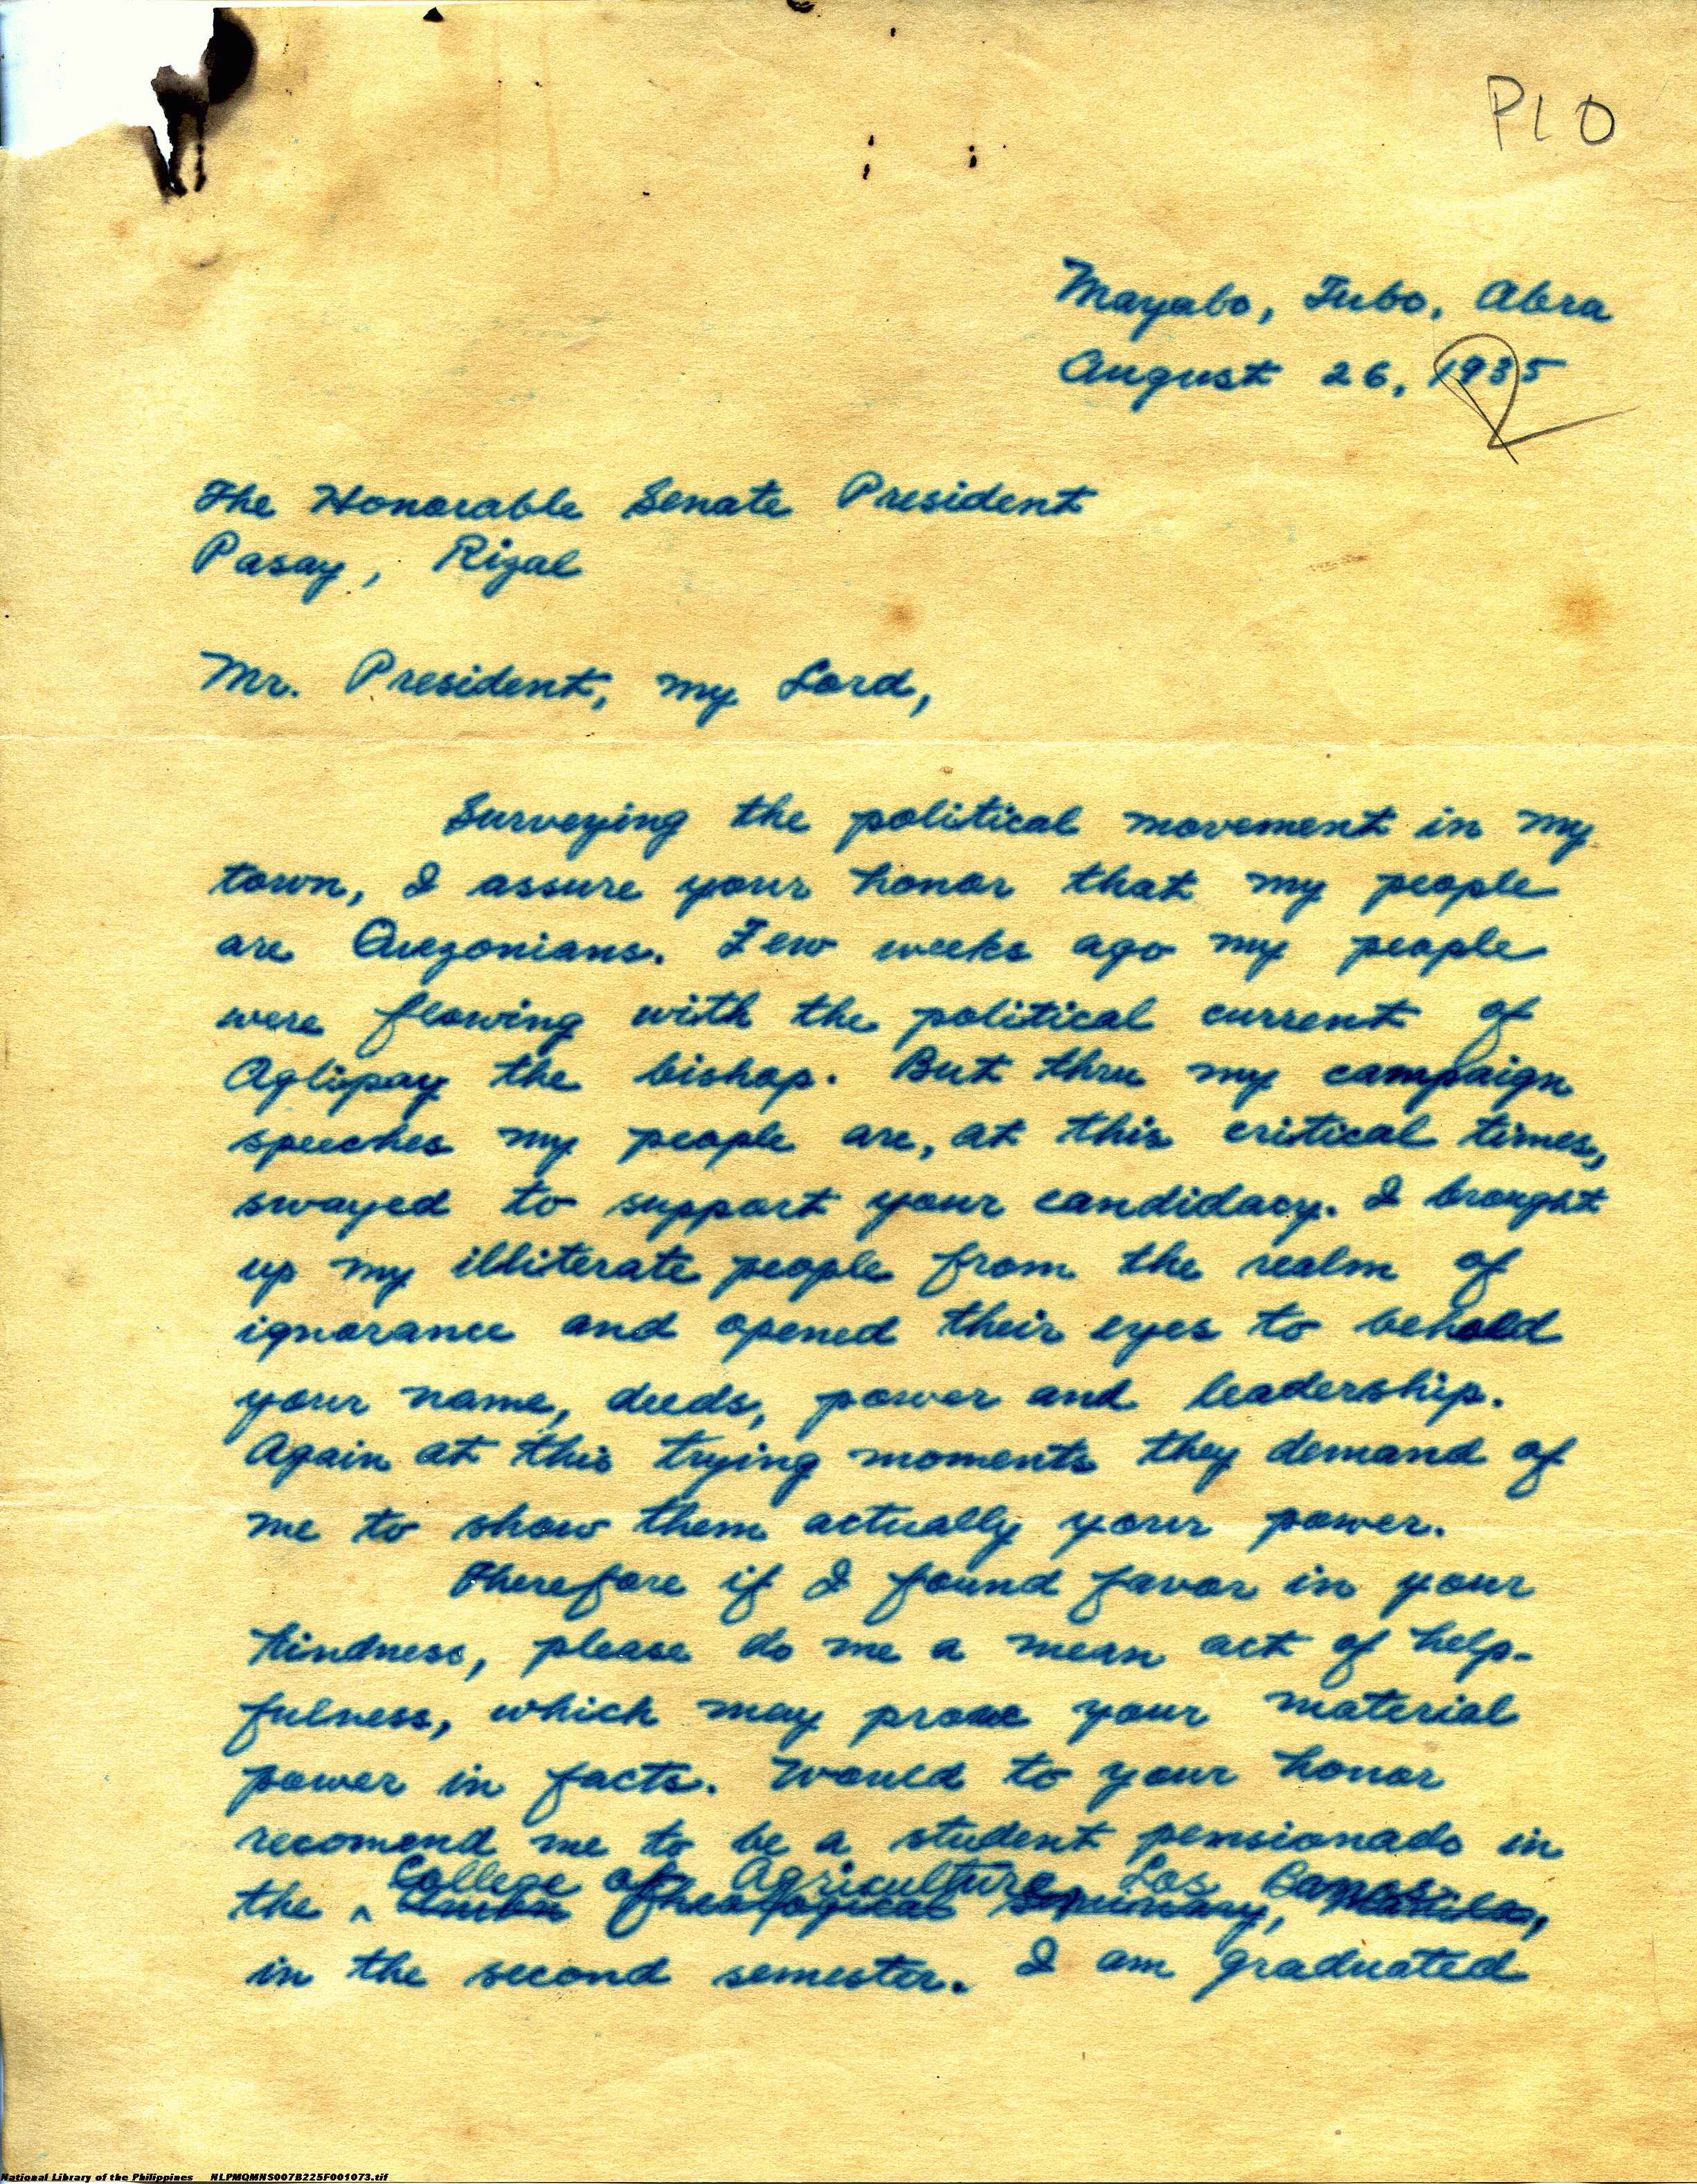 P L O
Mayabo, Tubo, Abra
August 26, 1935
The Honorable Senate President
Pasay, Rizal
Mr. President, my Lord,
Surveying the political movement in my
town, I assure your honor that my people
are Quezonians. Few weeks ago my people
were flowing with the political current of
Aglipay the bishop. But thru my campaign
speeches my people are, at this critical times,
swayed to support your candidacy. I brought
up my illiterate people from the realm of
ignorance and opened their eyes to behold
your name, deeds, power and leadership.
Again at this trying moments they demand of
me to show them actually your power.
Therefore if I found favor in your
kindness, please do me a mean act of help-
fulness, which may prove your material
power in facts. Would to your honor
recomend me to be a student pensionado in
College of Agriculture, Los Banos
the ^ Union Theological Seminary, Manila,
in the second semester. I am graduated
National Library of the Philippines NLPMQMNS007B225F001073.tif